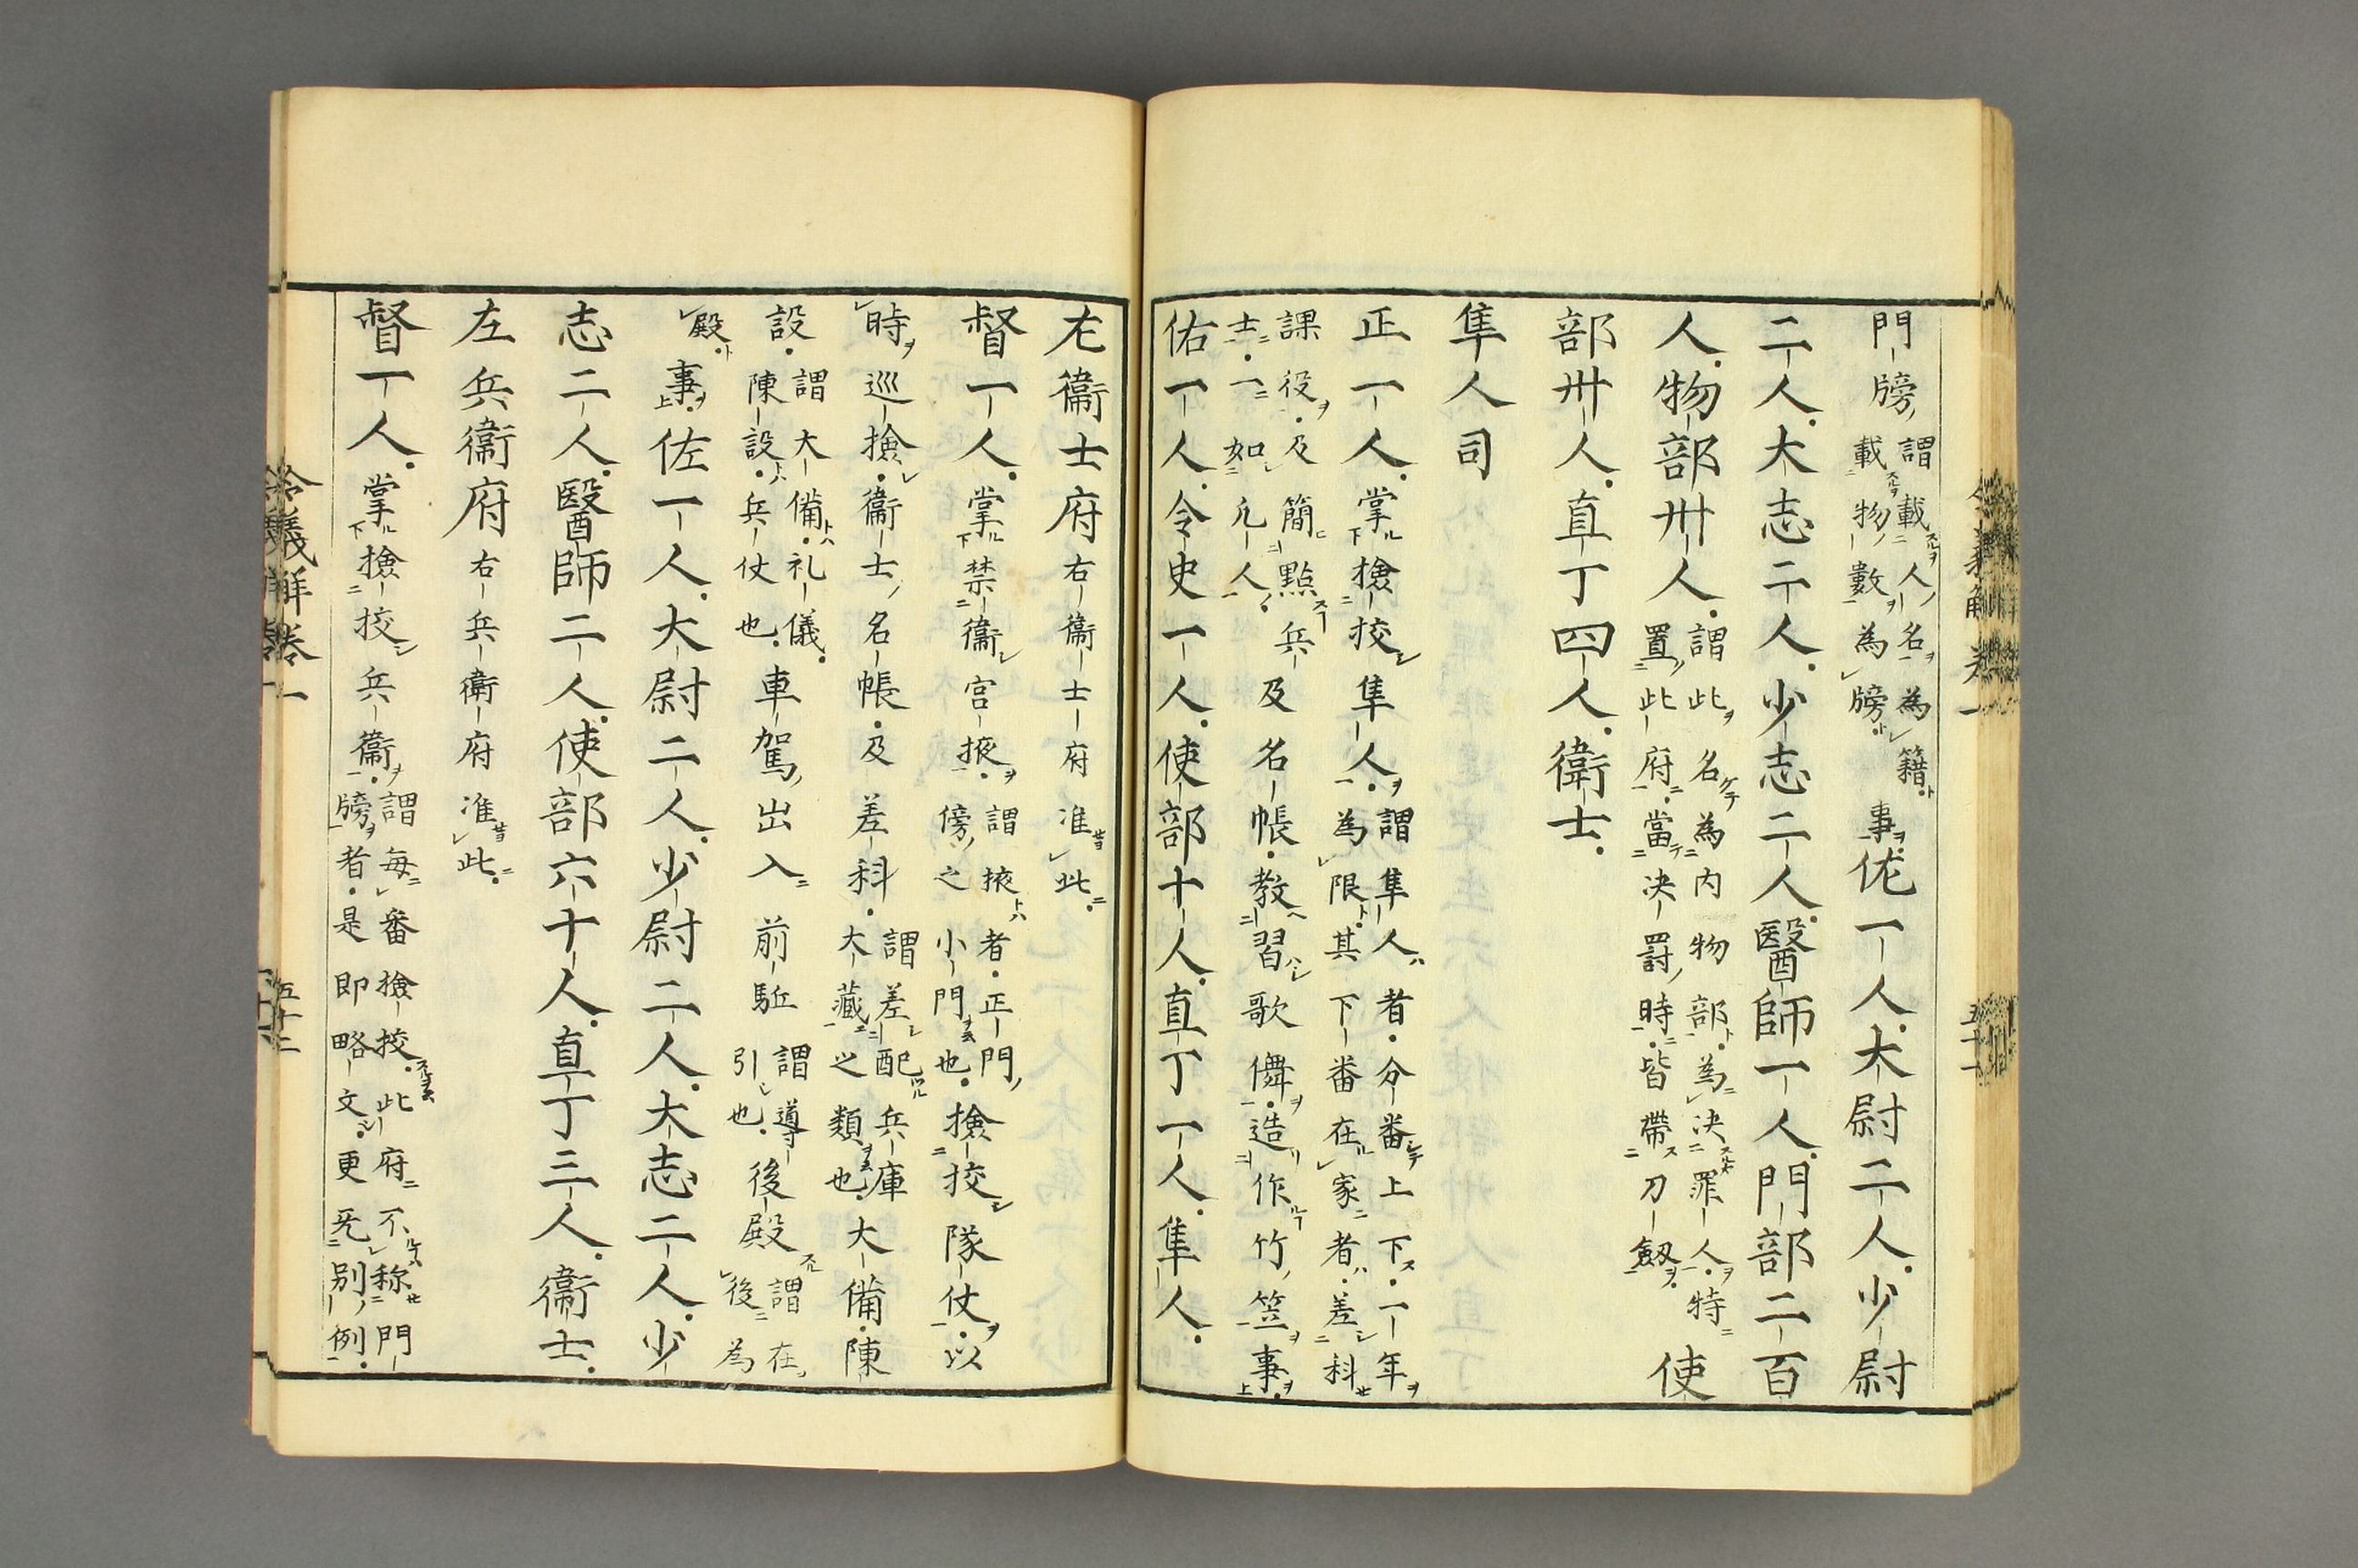 門牓謂載人名為籍載物數為牓事佐一人大尉二人少尉
二人大志二人少志二人醫師一人門部二百
人物部卅人謂此名為内物部為决罪人特置此府當决罸時皆帶刀劔使
部卅人直丁四人衛士
隼人司
正一人掌撿挍隼人謂隼人者分番上下一年為限其下番在家者差科
課役及簡點兵士一如凢人及名帳教習歌儛造作竹笠事
佑一人令史一人使部十人直丁一人隼人
左衞士府右衞士府准此
督一人掌禁衞宮掖謂掖者正門傍之小門也撿挍隊仗以
時巡撿衞士名帳及差科謂差配兵庫大藏之類也大備陳
設謂大備礼儀陳設兵仗也車駕出入前駈謂導引也後殿謂在後為
殿事佐一人大尉二人少尉二人大志二人少
志二人醫師二人使部六十人直丁三人衞士
左兵衞府右兵衛府准此
督一人掌撿挍兵衞謂每番撿挍此府不称門牓者是即略文更旡別例
令義解卷一 五十二